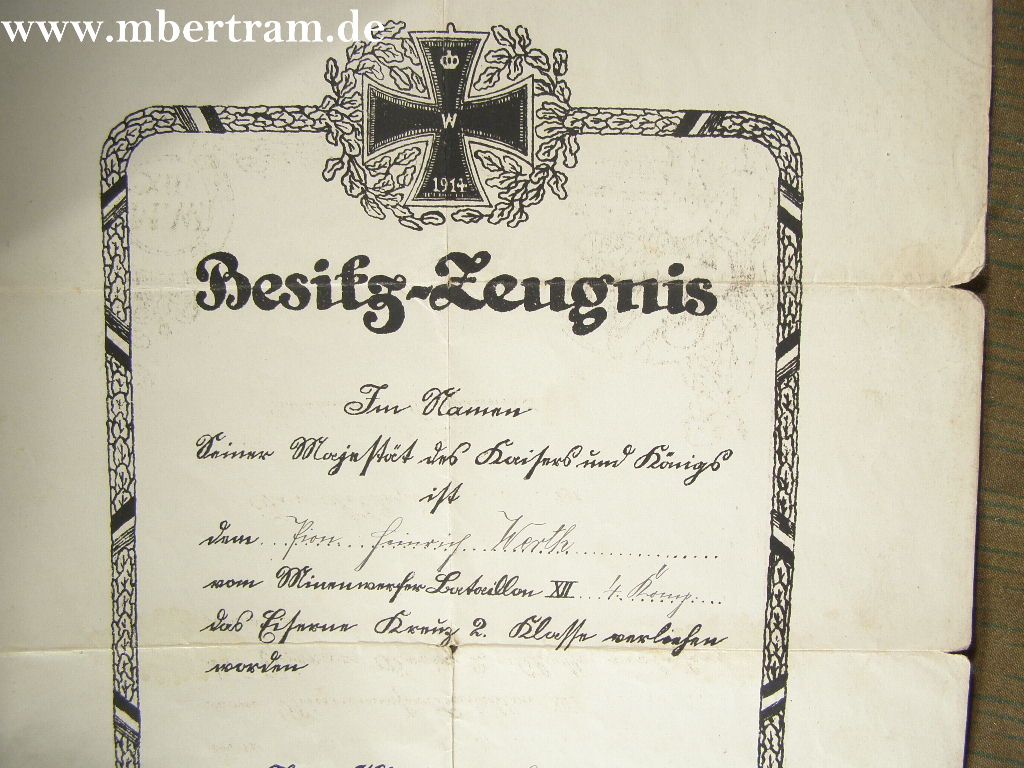 www.mbertram.de
W
1914
Besitz-Zeugnis
Im Namen
Seiner Majestät des Kaisers und Königs
ist
dem Pion. Heinrich Werth
vom Minenwerfer Bataillon XII 4. Komp.
das Eiserne Kreuz 2. Klasse verliehen
worden